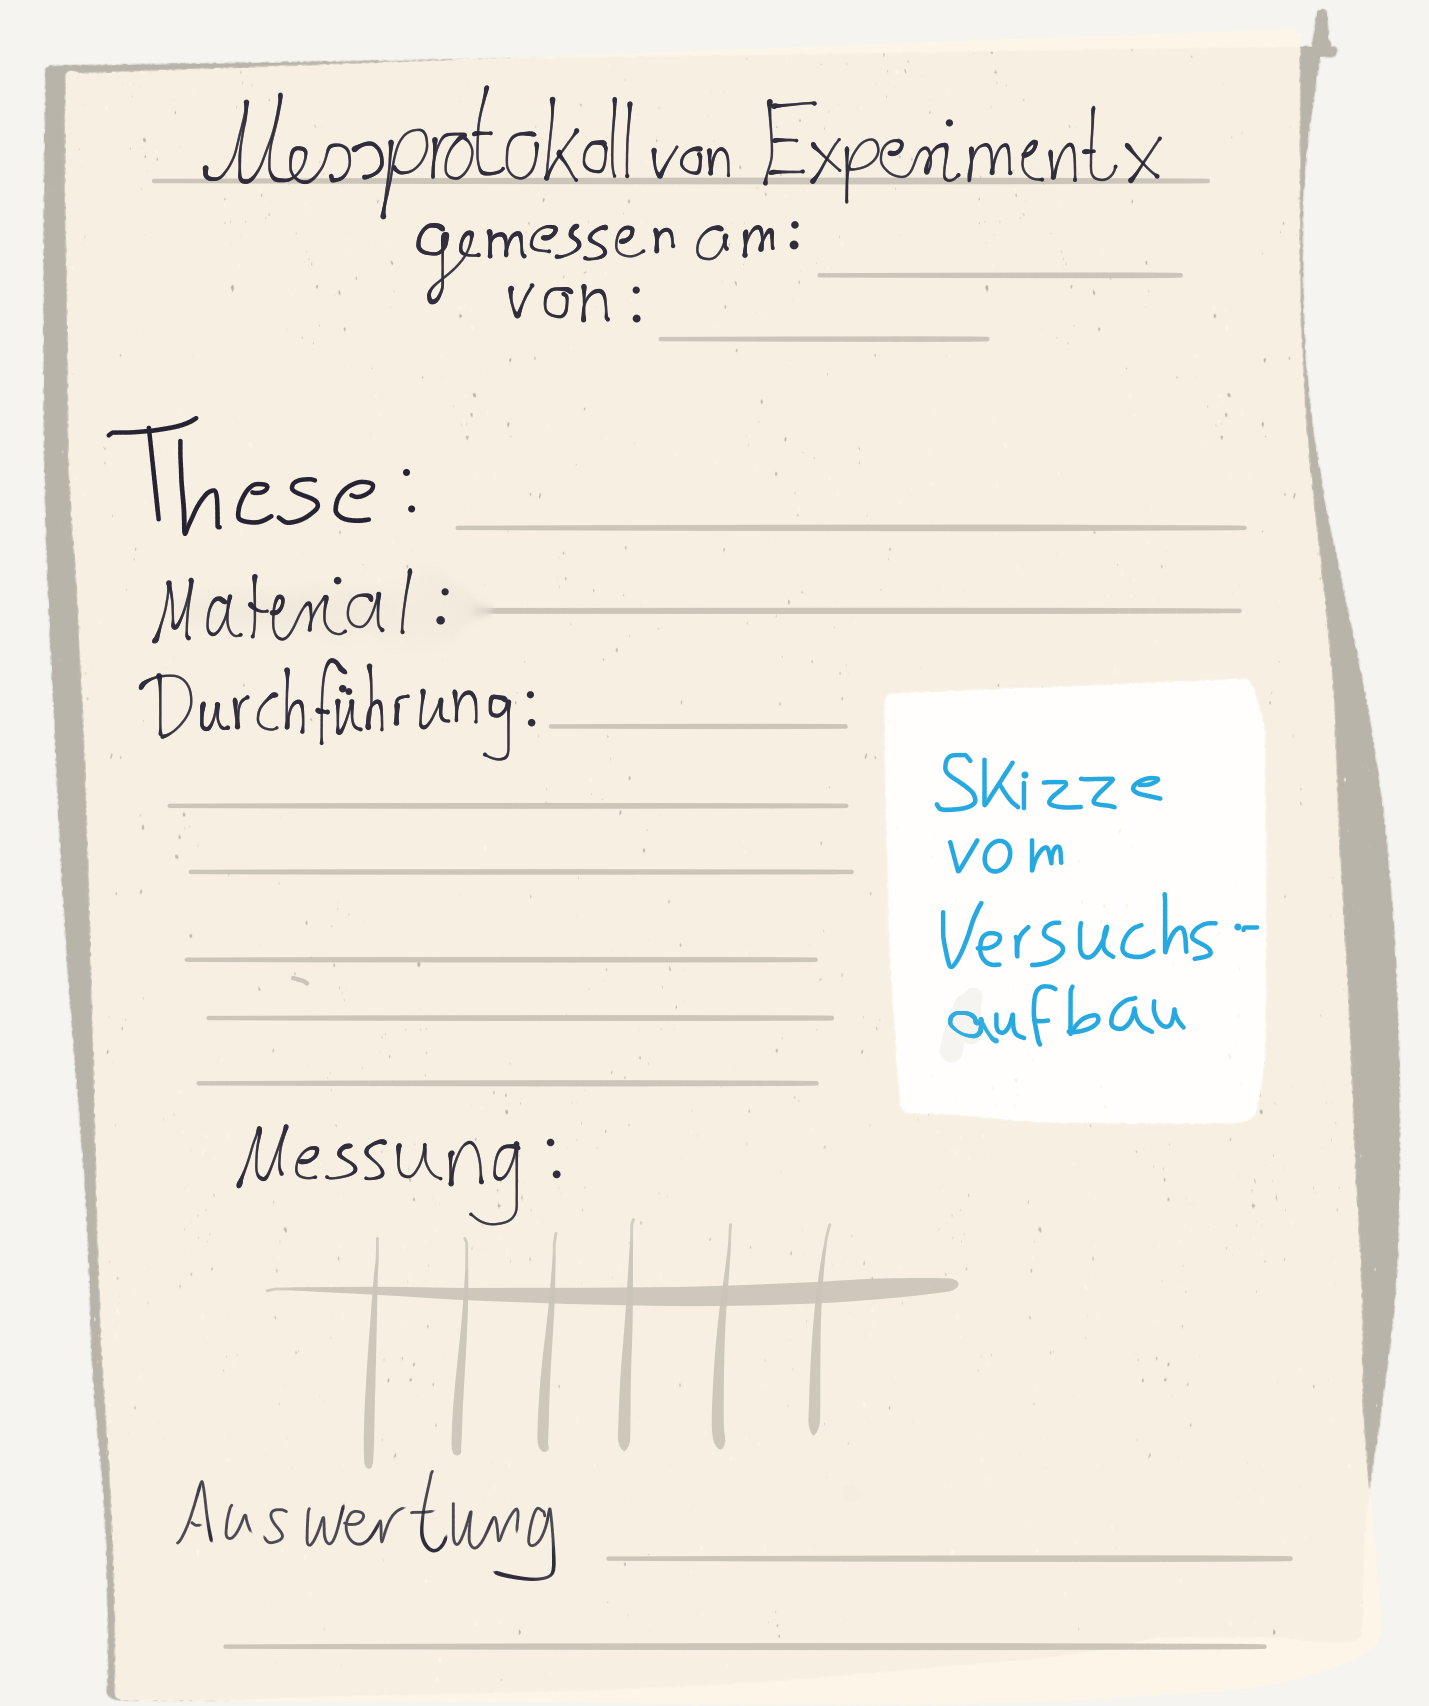 Messprotokoll von Experiment x
gemessen am:
von:
These:
Material:
Durchführung:
Skizze
vom
Versuchs-
aufbau
Messung:
Auswertung